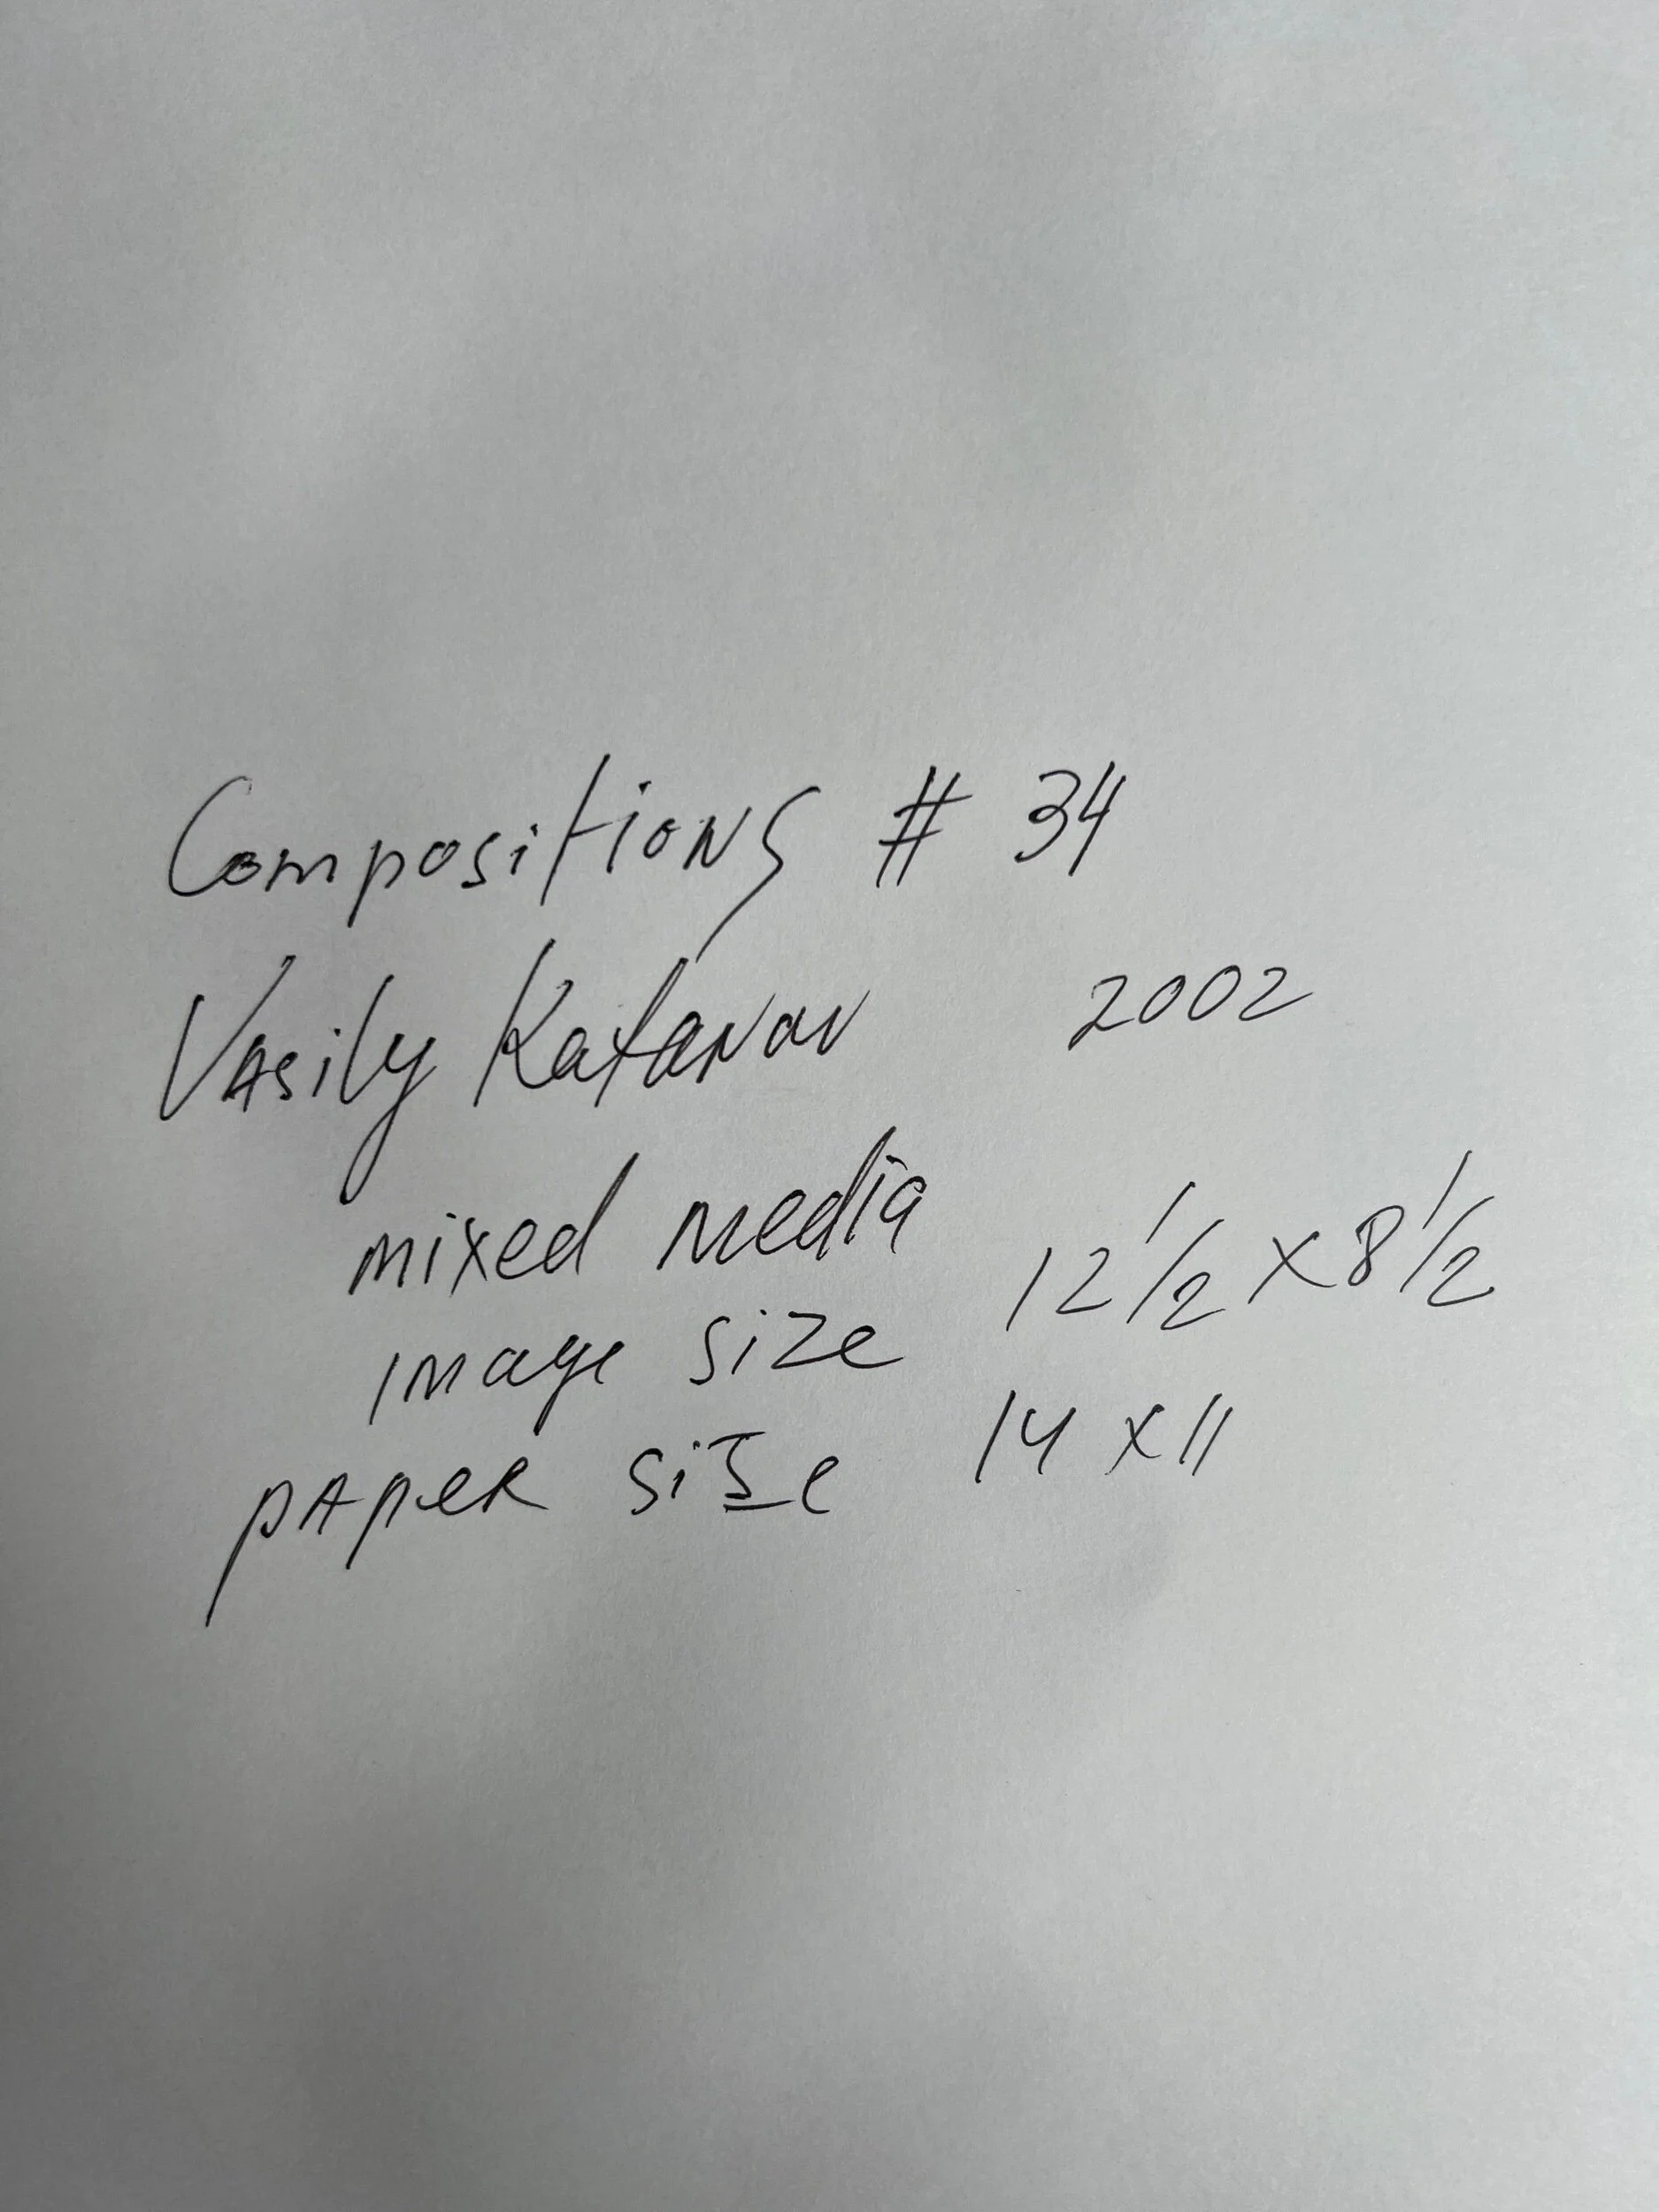 Compositions # 34
Vasily Katanov 2002
mixed media
image size 12 1/2 x 8 1/2
paper size 14 x 11